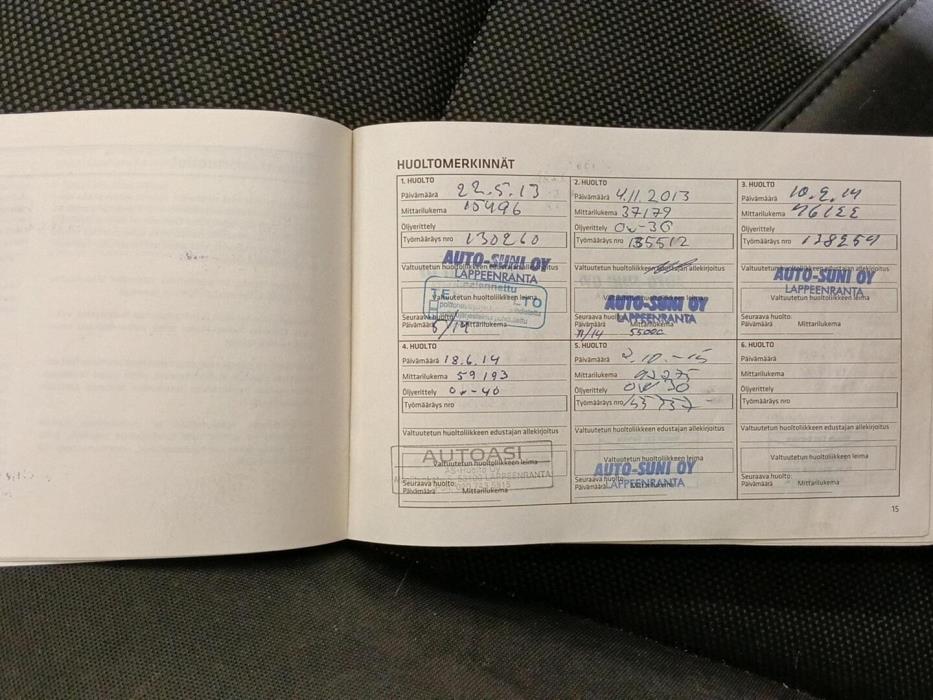 HUOLTOMERKINNÄT
1. HUOLTO
Päivämäärä 22.5.13
Mittarilukema 15496
Öljyerittely
Työmääräys nro 130260
Valtuutetun huoltoliikkeen edustajan allekirjoitus
AUTO-SUNI OY
LAPPEENRANTA
Valtuutetun huoltoliikkeen leima
Seuraava huolto:
Päivämäärä 5/14 Mittarilukema
2. HUOLTO
Päivämäärä 4.11.2013
Mittarilukema 37179
Öljyerittely 0w-30
Työmääräys nro 135512
Valtuutetun huoltoliikkeen edustajan allekirjoitus
Valtuutetun huoltoliikkeen leima
AUTO-SUNI OY
LAPPEENRANTA
Seuraava huolto:
Päivämäärä 11/14 Mittarilukema 55000
3. HUOLTO
Päivämäärä
Mittarilukema
Öljyerittely
Työmääräys nro 138259
Valtuutetun huoltoliikkeen edustajan allekirjoitus
AUTO-SUNI OY
LAPPEENRANTA
Valtuutetun huoltoliikkeen leima
Seuraava huolto:
Päivämäärä Mittarilukema
4. HUOLTO
Päivämäärä 18.6.14
Mittarilukema 59193
Öljyerittely 0w-40
Työmääräys nro
Valtuutetun huoltoliikkeen edustajan allekirjoitus
AUTOASI
Valtuutetun huoltoliikkeen leima
AS-Huolto OY
LAPPEENRANTA
Seuraava huolto:
Päivämäärä Mittarilukema
5. HUOLTO
Päivämäärä 2.10.-15
Mittarilukema 92275
Öljyerittely 0W30
Työmääräys nro
Valtuutetun huoltoliikkeen edustajan allekirjoitus
Valtuutetun huoltoliikkeen leima
AUTO-SUNI OY
LAPPEENRANTA
Seuraava huolto:
Päivämäärä Mittarilukema
6. HUOLTO
Päivämäärä
Mittarilukema
Öljyerittely
Työmääräys nro
Valtuutetun huoltoliikkeen edustajan allekirjoitus
Valtuutetun huoltoliikkeen leima
Seuraava huolto:
Päivämäärä Mittarilukema
15